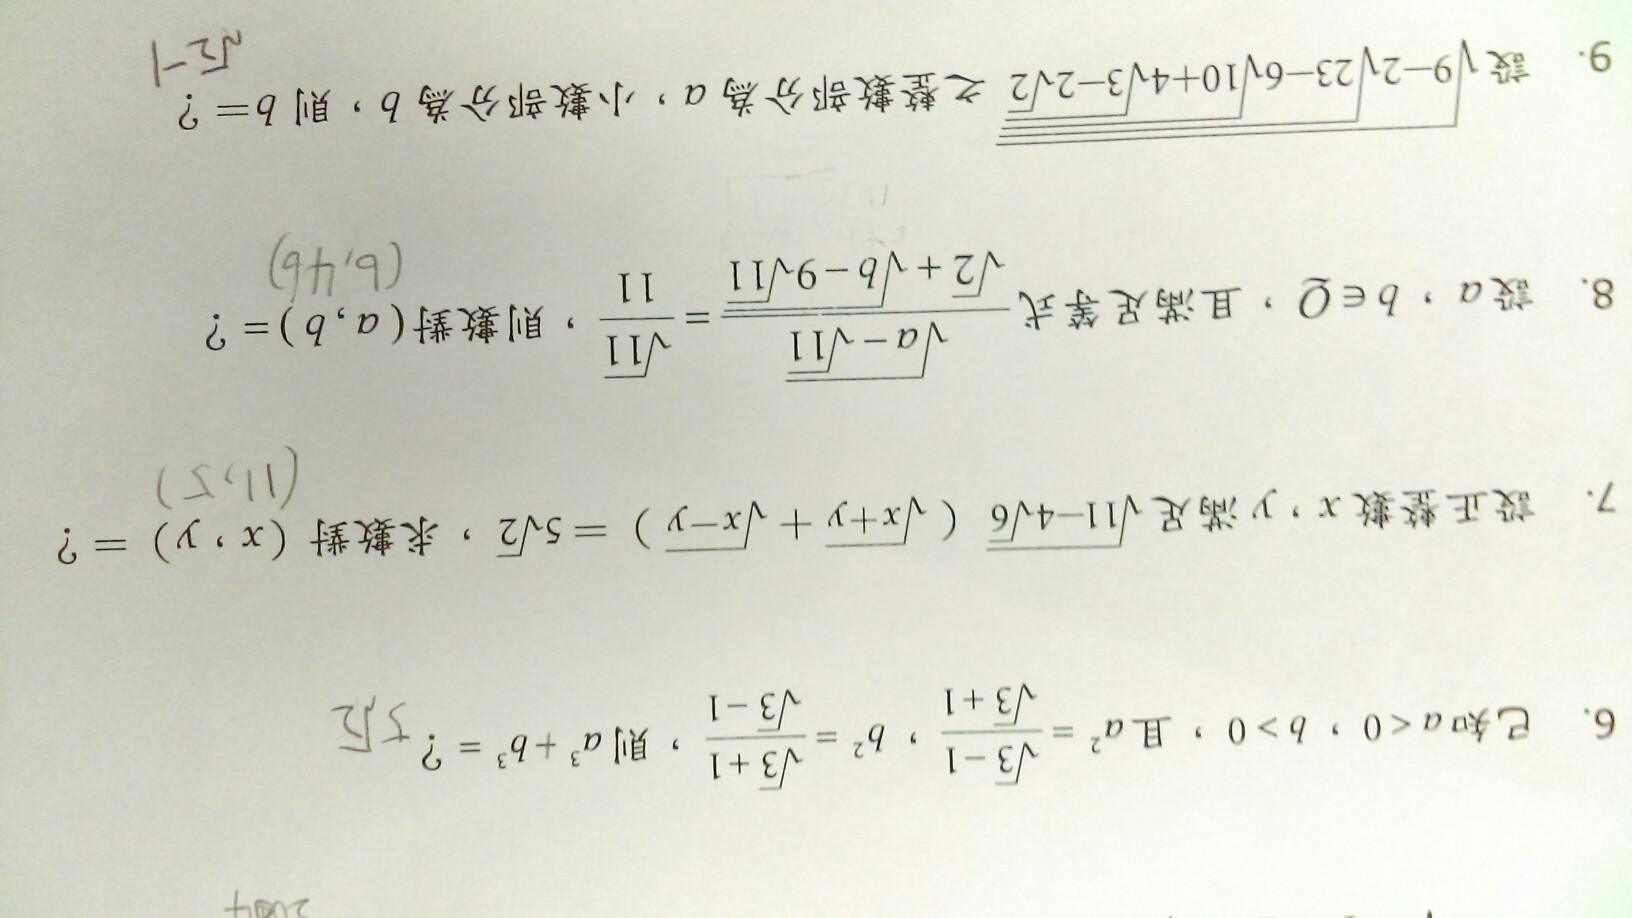 2004
6. 已知a<0,b>0,且a²=(√3-1)/(√3+1),b²=(√3+1)/(√3-1),則a³+b³=? 5√2
7. 設正整數x,y滿足√(11-4√6) (√(x+y)+√(x-y))=5√2,求數對(x,y)=?
(11,5)
8. 設a,b∈Q,且滿足等式 √(a-√11)/(√2+√(b-9√11))=√11/11,則數對(a,b)=?
(6,46)
9. 設√(9-2√(23-6√(10+4√(3-2√2))))之整數部分為a,小數部分為b,則b=?
√2-1